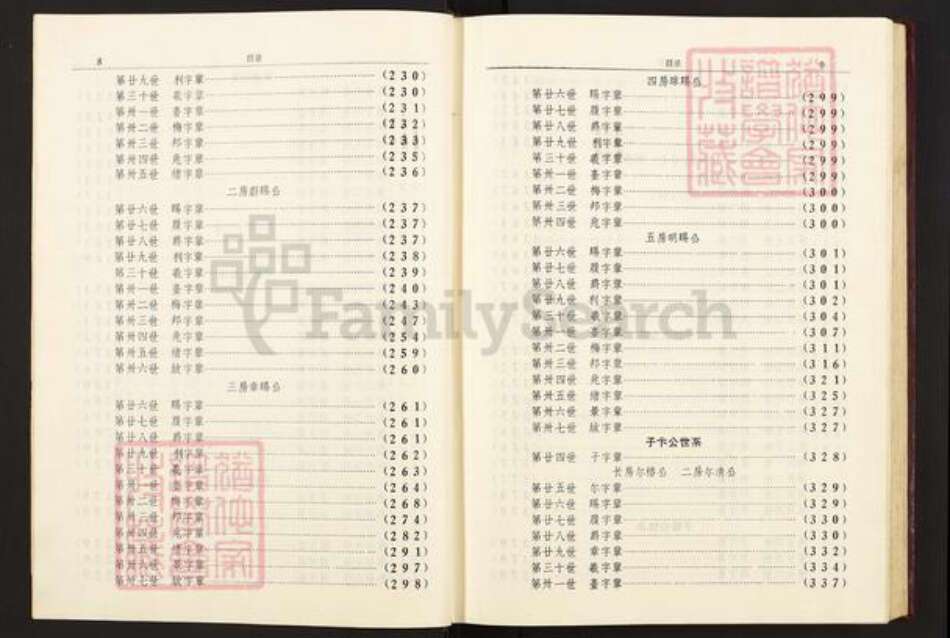 8 目录
第廿九世 利字辈 (230)
第三十世 羲字辈 (230)
第卅一世 臺字辈 (231)
第卅二世 梅字辈 (232)
第卅三世 邦字辈 (233)
第卅四世 兆字辈 (235)
第卅五世 绪字辈 (236)
二房 赐公
第廿六世 赐字辈 (237)
第廿七世 履字辈 (237)
第廿八世 爵字辈 (237)
第廿九世 利字辈 (238)
第三十世 羲字辈 (239)
第卅一世 臺字辈 (240)
第卅二世 梅字辈 (243)
第卅三世 邦字辈 (247)
第卅四世 兆字辈 (254)
第卅五世 绪字辈 (259)
第卅六世 字辈 (260)
三房章赐公
第廿六世 赐字辈 (261)
第廿七世 履字辈 (261)
第廿八世 爵字辈 (261)
第廿九世 利字辈 (262)
第三十世 羲字辈 (263)
第卅一世 臺字辈 (264)
第卅二世 梅字辈 (268)
第卅三世 邦字辈 (274)
第卅四世 兆字辈 (282)
第卅五世 绪字辈 (291)
第卅六世 景字辈 (297)
第卅七世 字辈 (298)
目录
四房 赐公
第廿六世 赐字辈 (299)
第廿七世 履字辈 (299)
第廿八世 爵字辈 (299)
第廿九世 利字辈 (299)
第三十世 羲字辈 (299)
第卅一世 臺字辈 (299)
第卅二世 梅字辈 (300)
第卅三世 邦字辈 (300)
第卅四世 兆字辈 (300)
五房明赐公
第廿六世 赐字辈 (301)
第廿七世 履字辈 (301)
第廿八世 爵字辈 (301)
第廿九世 利字辈 (302)
第三十世 羲字辈 (304)
第卅一世 臺字辈 (307)
第卅二世 梅字辈 (311)
第卅三世 邦字辈 (316)
第卅四世 兆字辈 (321)
第卅五世 绪字辈 (325)
第卅六世 景字辈 (327)
第卅七世 字辈 (327)
子卞公世系
第廿四世 子字辈 (328)
长房尔 公 二房尔 公
第廿五世 尔字辈 (329)
第廿六世 赐字辈 (329)
第廿七世 履字辈 (330)
第廿八世 爵字辈 (330)
第廿九世 章字辈 (332)
第三十世 羲字辈 (334)
第卅一世 臺字辈 (337)
FamilySearch